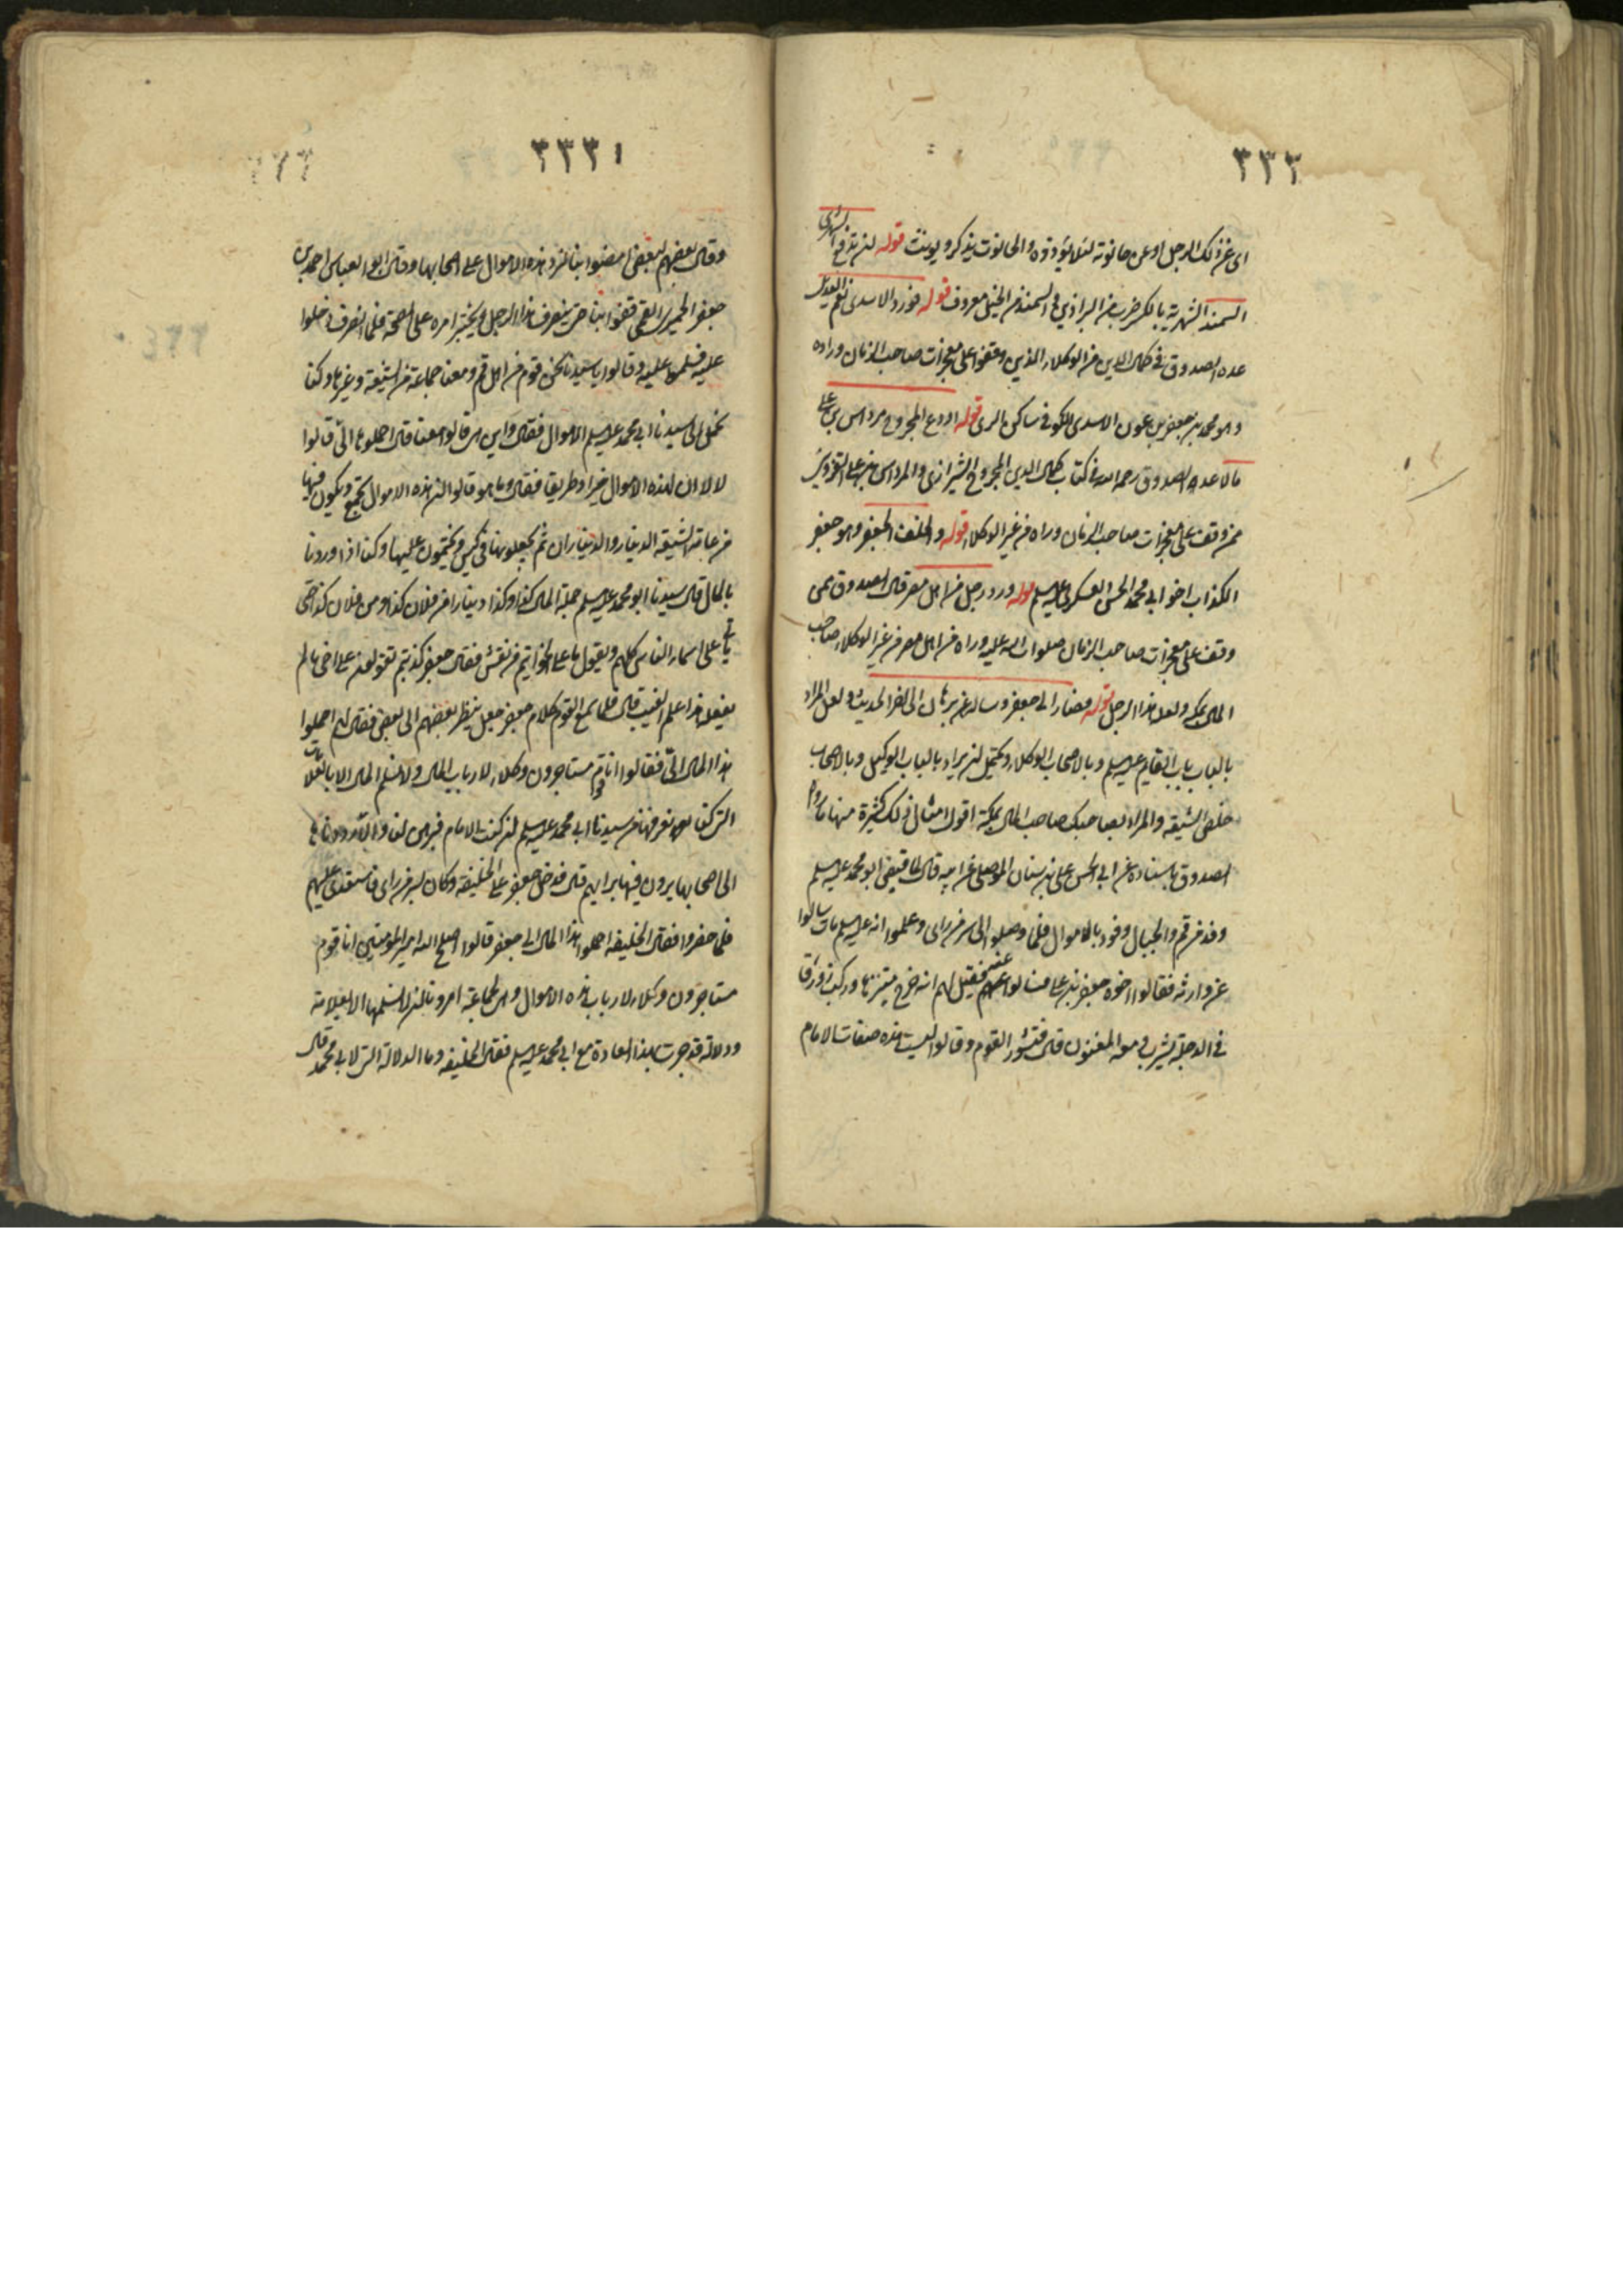 ٣٣٣
اى عن ذلك الرجل او عن حانوته لئلا يؤذوه والحانوت يذكر ويؤنث قوله ان تدفع الشهرى
السمند الشهرية بالكسر ضرب من البراذين والسمند من الخيل معروف قوله فورد الاسدى نعم العديل
عده الصدوق فى كمال الدين من الوكلاء الذين وقفوا على معجزات صاحب الزمان وراوه
وهو محمد بن جعفر بن عون الاسدى الكوفى ساكن الرى قوله اودع المجروح مرداس بن على
مالا عده الصدوق رحمه الله فى كتاب كمال الدين المجروح الشيرازى والمرداس بن على القزوينى
ممن وقف على معجزات صاحب الزمان وراه من غير الوكلاء قوله والخلف الجعفر وهو جعفر
الكذاب اخو ابى محمد الحسن العسكرى عليه السلم قوله ورد رجل من اهل مصر قال الصدوق ممن
وقف على معجزات صاحب الزمان صلوات الله عليه وراه من اهل مصر من غير الوكلاء صاحب
المال بمكة ولعله هذا الرجل قوله فصار الى جعفر وساله عن برهان الى اخر الحديث ولعل المراد
بالباب باب القايم عليه السلم وبالاصحاب الوكلاء ويحتمل ان يراد بالباب الوكيل وبالاصحاب
خلص الشيعة والمراد بصاحبك صاحب المال بمكة اقول امثال ذلك كثيرة منها ما رواه
الصدوق باسناده عن ابى الحسن على بن سنان الموصلى عن ابيه قال لما قبض ابو محمد عليه السلم
وفد من قم والجبال وفود بالاموال فلما وصلوا الى سر من راى وعلموا انه عليه السلم مات سالوا
عن وارثه فقالوا اخوه جعفر بن على فسالوا عنه فقيل لهم انه خرج متنزها وركب زورقا
فى الدجلة يشرب ومعه المغنون قال فتشور القوم وقالوا ليست هذه صفات الامام
٣٣٣١
وقال بعضهم لبعض امضوا بنا لنرد هذه الاموال على اصحابها وقال ابو العباس احمد بن
جعفر الحميرى القمى قفوا بنا حتى ينصرف هذا الرجل ونختبر امره على الصحة فلما انصرف دخلوا
عليه فسلموا عليه وقالوا يا سيدنا نحن قوم من اهل قم ومعنا جماعة من الشيعة وغيرها وكنا
نحمل الى سيدنا ابى محمد عليه السلم الاموال فقال واين هى قالوا معنا قال احملوها الى قالوا
لا لا ان لهذه الاموال خبرا وطريقا فقال وما هو قالوا ان هذه الاموال تجمع ويكون فيها
من عامة الشيعة الدينار والديناران ثم يجعلونها فى كيس ويختمون عليها وكنا اذا وردنا
بالمال قال سيدنا ابو محمد عليه السلم جملة المال كذا وكذا دينارا من فلان كذا ومن فلان كذا حتى
ياتى على اسماء الناس كلهم ويقول ما على الخواتيم من نقش فقال جعفر كذبتم تقولون على اخى ما لم
يفعله هذا علم الغيب قال فلما سمع القوم كلام جعفر جعل ينظر بعضهم الى بعض فقال لهم احملوا
هذا المال الى فقالوا انا قوم مستاجرون وكلاء لارباب المال ولا نسلم المال الا بالعلامات
التى كنا نعرفها من سيدنا ابى محمد عليه السلم ان كنت الامام فبرهن لنا والا رددناها
الى اصحابها يرون فيها برايهم قال فدخل جعفر على الخليفة وكان بسر من راى فاستعدى عليهم
فلما حضروا فقال الخليفة احملوا هذا المال الى جعفر قالوا اصلح الله امير المؤمنين انا قوم
مستاجرون وكلاء لارباب هذه الاموال وهى لجماعة امرونا ان لا نسلمها الا بعلامة
ودلالة قد جرت بهذا العادة مع ابى محمد عليه السلم فقال الخليفة وما الدلالة التى لابى محمد قال